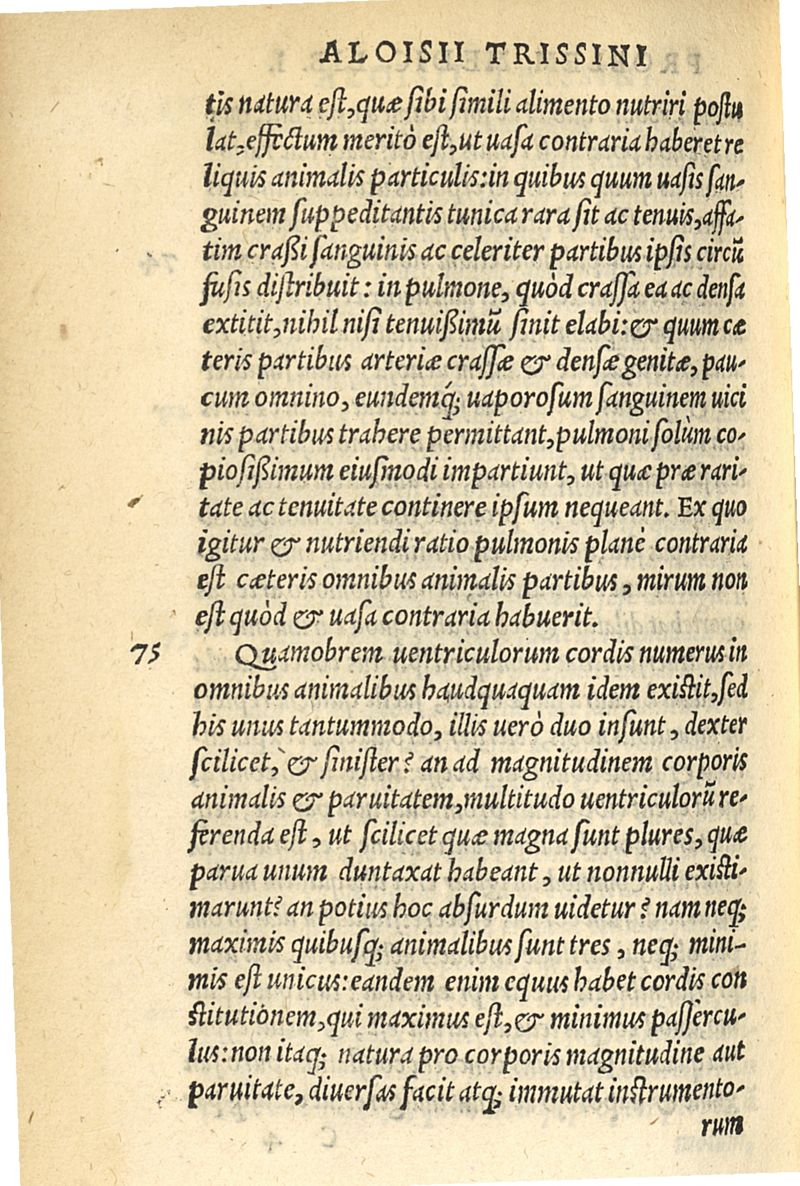 ALOISII TRISSINI
tis natura est, quæ sibi simili alimento nutriri postu
lat, effectum meritò est, ut uasa contraria haberet re
liquis animalis particulis: in quibus quum uasis san-
guinem suppeditantis tunica rara sit ac tenuis, affa-
tim craßi sanguinis ac celeriter partibus ipsis circũ
fusis distribuit: in pulmone, quòd crassa ea ac densa
extitit, nihil nisi tenuißimũ sinit elabi: & quum cæ
teris partibus arteriæ crassæ & densæ genitæ, pau-
cum omnino, eundemq́; uaporosum sanguinem uici
nis partibus trahere permittant, pulmoni solùm co-
piosißimum eiusmodi impartiunt, ut quæ præ rari-
tate ac tenuitate continere ipsum nequeant. Ex quo
igitur & nutriendi ratio pulmonis planè contraria
est cæteris omnibus animalis partibus, mirum non
est quòd & uasa contraria habuerit.
75 Quamobrem uentriculorum cordis numerus in
omnibus animalibus haudquaquam idem existit, sed
his unus tantummodo, illis uerò duo insunt, dexter
scilicet, & sinister? an ad magnitudinem corporis
animalis & paruitatem, multitudo uentriculorũ re-
ferenda est, ut scilicet quæ magna sunt plures, quæ
parua unum duntaxat habeant, ut nonnulli existi-
marunt? an potius hoc absurdum uidetur? nam neq;
maximis quibusq; animalibus sunt tres, neq; mini-
mis est unicus: eandem enim equus habet cordis con
stitutionem, qui maximus est, & minimus passercu-
lus: non itaq; natura pro corporis magnitudine aut
paruitate, diuersas facit atq; immutat instrumento-
rum